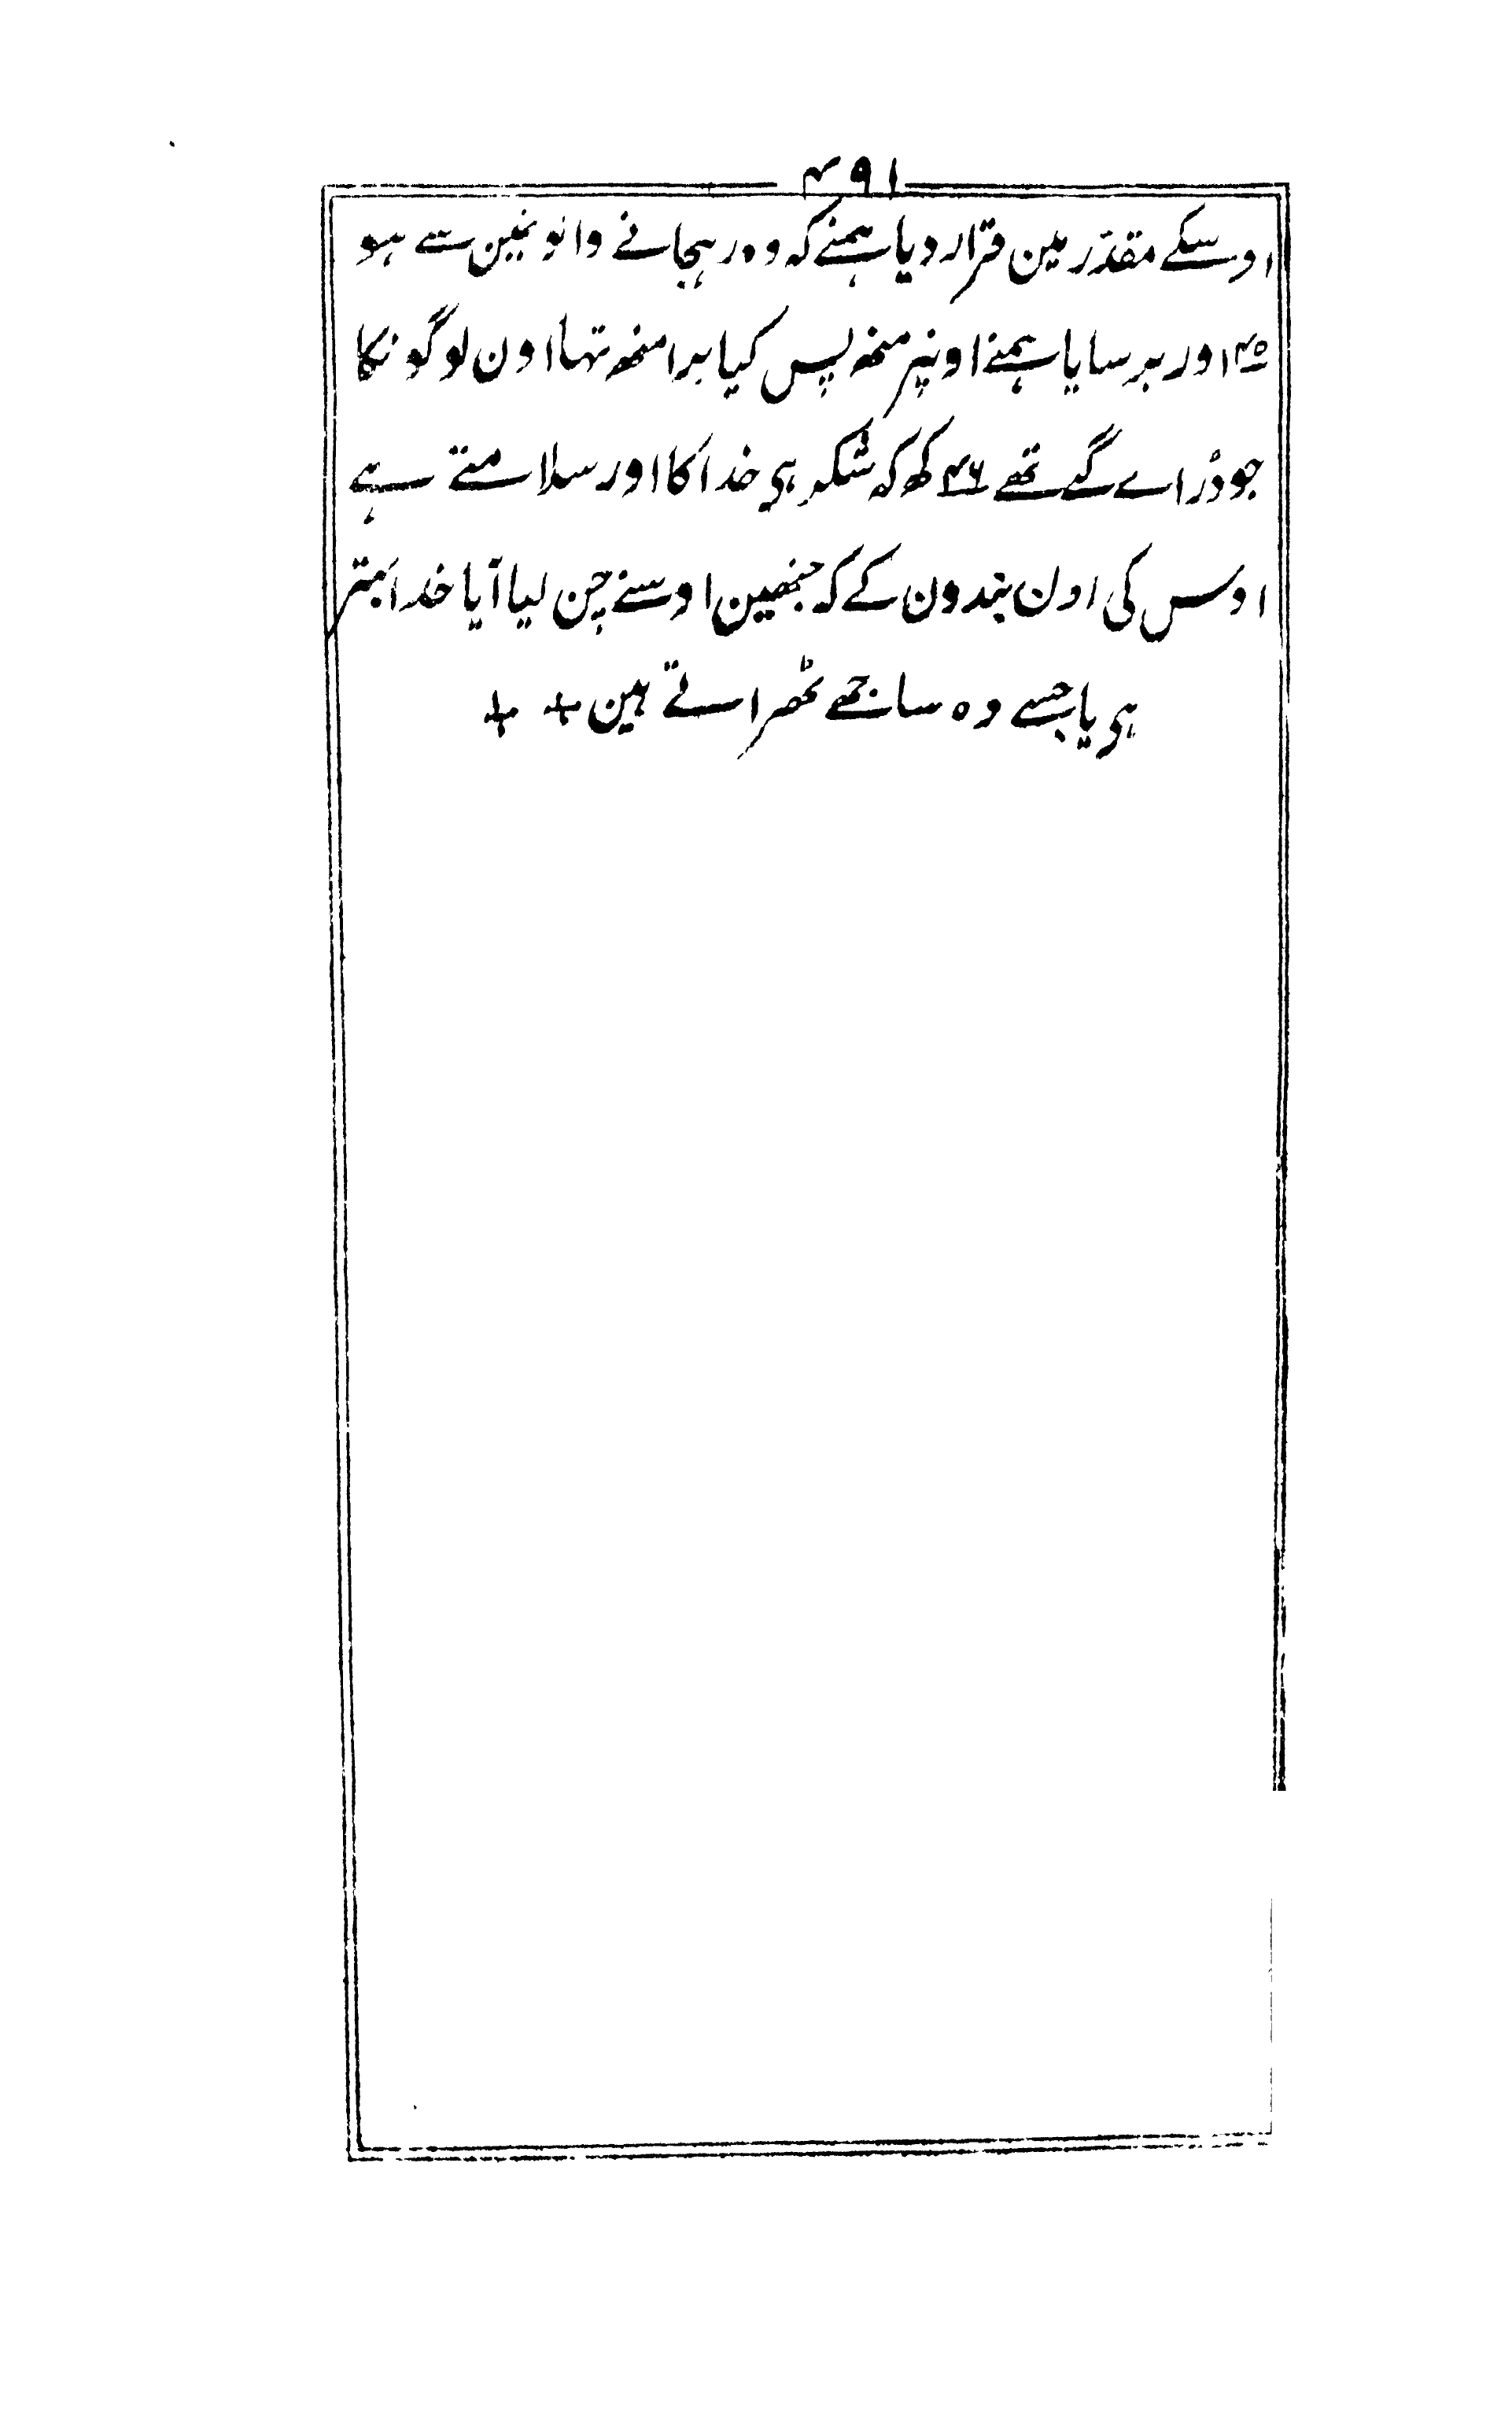 ۴۹۱
اوسکے مقدّر مین قرار دیا ہمنے کہ وہ رہجانے والونمین سے ہو
۴۵ اور برسایا ہمنے اونپر منھ پس کیا برا منھ تہا اون لوگونکا
جو ڈراے گے تھے ۴۶ کھ کہ شکر ہی خدا کا اور سلامتے ہے
اوس کی اون بندون کے کہ جنھین اوسنے چن لیا آیا خدا بہتر
ہی یا جسے وہ ساجھے ٹھراتے ہین + +